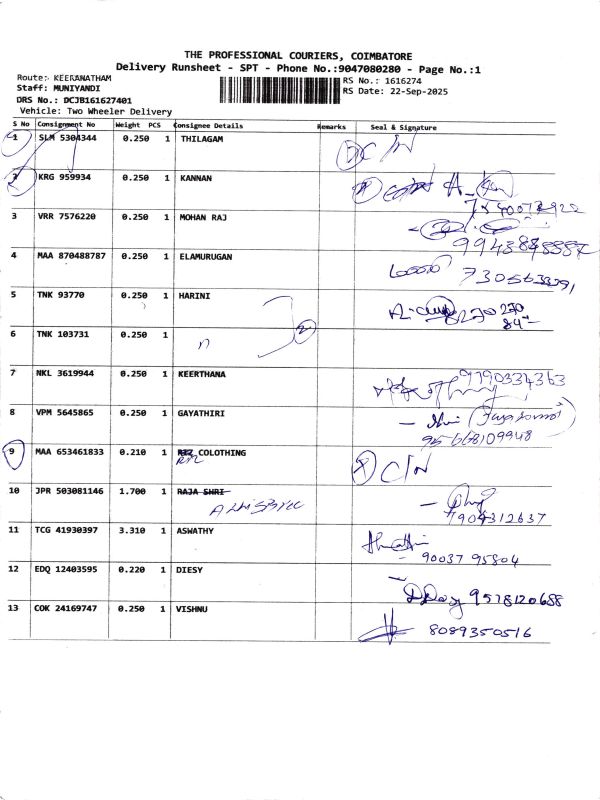 THE PROFESSIONAL COURIERS, COIMBATORE
Delivery Runsheet - SPT - Phone No.:9047080280 - Page No.:1
Route: KEERANATHAM
RS No.: 1616274
Staff: MUNIYANDI
RS Date: 22-Sep-2025
DRS No.: DCJB161627401
Vehicle: Two Wheeler Delivery
S No Consignment No Weight PCS Consignee Details Remarks Seal & Signature
1 SLM 5304344 0.250 1 THILAGAM C/N
2 KRG 959934 0.250 1 KANNAN
3 VRR 7576220 0.250 1 MOHAN RAJ
4 MAA 870488787 0.250 1 ELAMURUGAN
5 TNK 93770 0.250 1 HARINI
6 TNK 103731 0.250 1 n 2
7 NKL 3619944 0.250 1 KEERTHANA 9790334363
8 VPM 5645865 0.250 1 GAYATHIRI
95-668109948
9 MAA 653461833 0.210 1 RTZ COLOTHING C/N
10 JPR 503081146 1.700 1 RAJA SHRI
7904312637
11 TCG 41930397 3.310 1 ASWATHY
90037 95804
12 EDQ 12403595 0.220 1 DIESY
9578120688
13 COK 24169747 0.250 1 VISHNU 8089350516